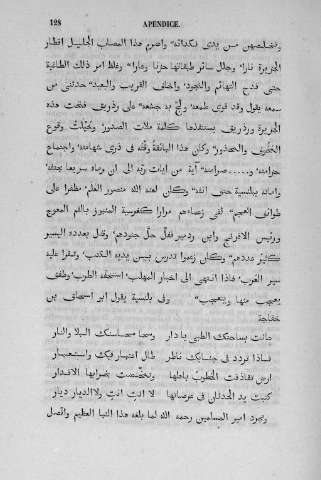 128 APENDICE.
وتخلصهم من يدى نكدانه" واضرم هذا المصاب الجليل اقطار
الجزيرة نارا" وجلل سائر طبقاتها حزنا وعارا" وغلظ امر ذلك الطاغية
حتى فدح التهائم والنجود" واخاف القريب والبعيد" حدثنى من
سمعه يقول وقد قوى طمعه" ولج به جشعه" على رذريق فتحت هذه
الجزيرة ورذريق يستنقذها كلمة ملات الصدور" وخيلت وقوع
المخوف والمحذور" وكان هذا البائقة وقته فى درى شهامته" واجتماع
حزامته" وصرامته" آية من ايات ربه الى ان رماه سريعا بحتفه"
واماته ببلنسية حتف انفه" وكان لعنه الله منصور العلم" مظفرا على
طوائف العجم" لقى زعماءهم مرارا كغرسية المنبوز بالفم المعوج
ورئيس الافرنج وابن ردمير ففل حد جنودهم" وقتل بعدده اليسير
كثير عددهم" وكان زعموا تدرس بين يديه الكتب" وتقرا عليه
سير العرب" فاذا انتهى الى اخبار المهلب" استخفه الطرب" وطفق
يعجب منها ويتعجب" وفى بلنسية يقول ابو اسحاق بن
خفاجة
عاثت بساحتك الظبى يا دار ومحا محاسنك البلا والنار
فاذا تردد فى جنابك ناظر طال اعتبار فيك واستعبار
ارض تقاذفت الخطوب باهلها وتمخضت بخرابها الاقدار
كتبت يد الحدثان فى عرصاتها لا انت انت ولا الديار ديار
وتجرد امير المسلمين رحمه الله لما بلغه هذا النبا العظيم واتصل